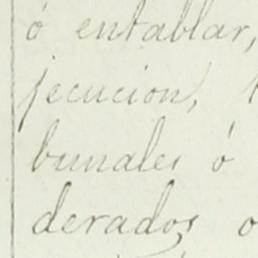 ó entablar,
jecucion,
bunales ó
derados